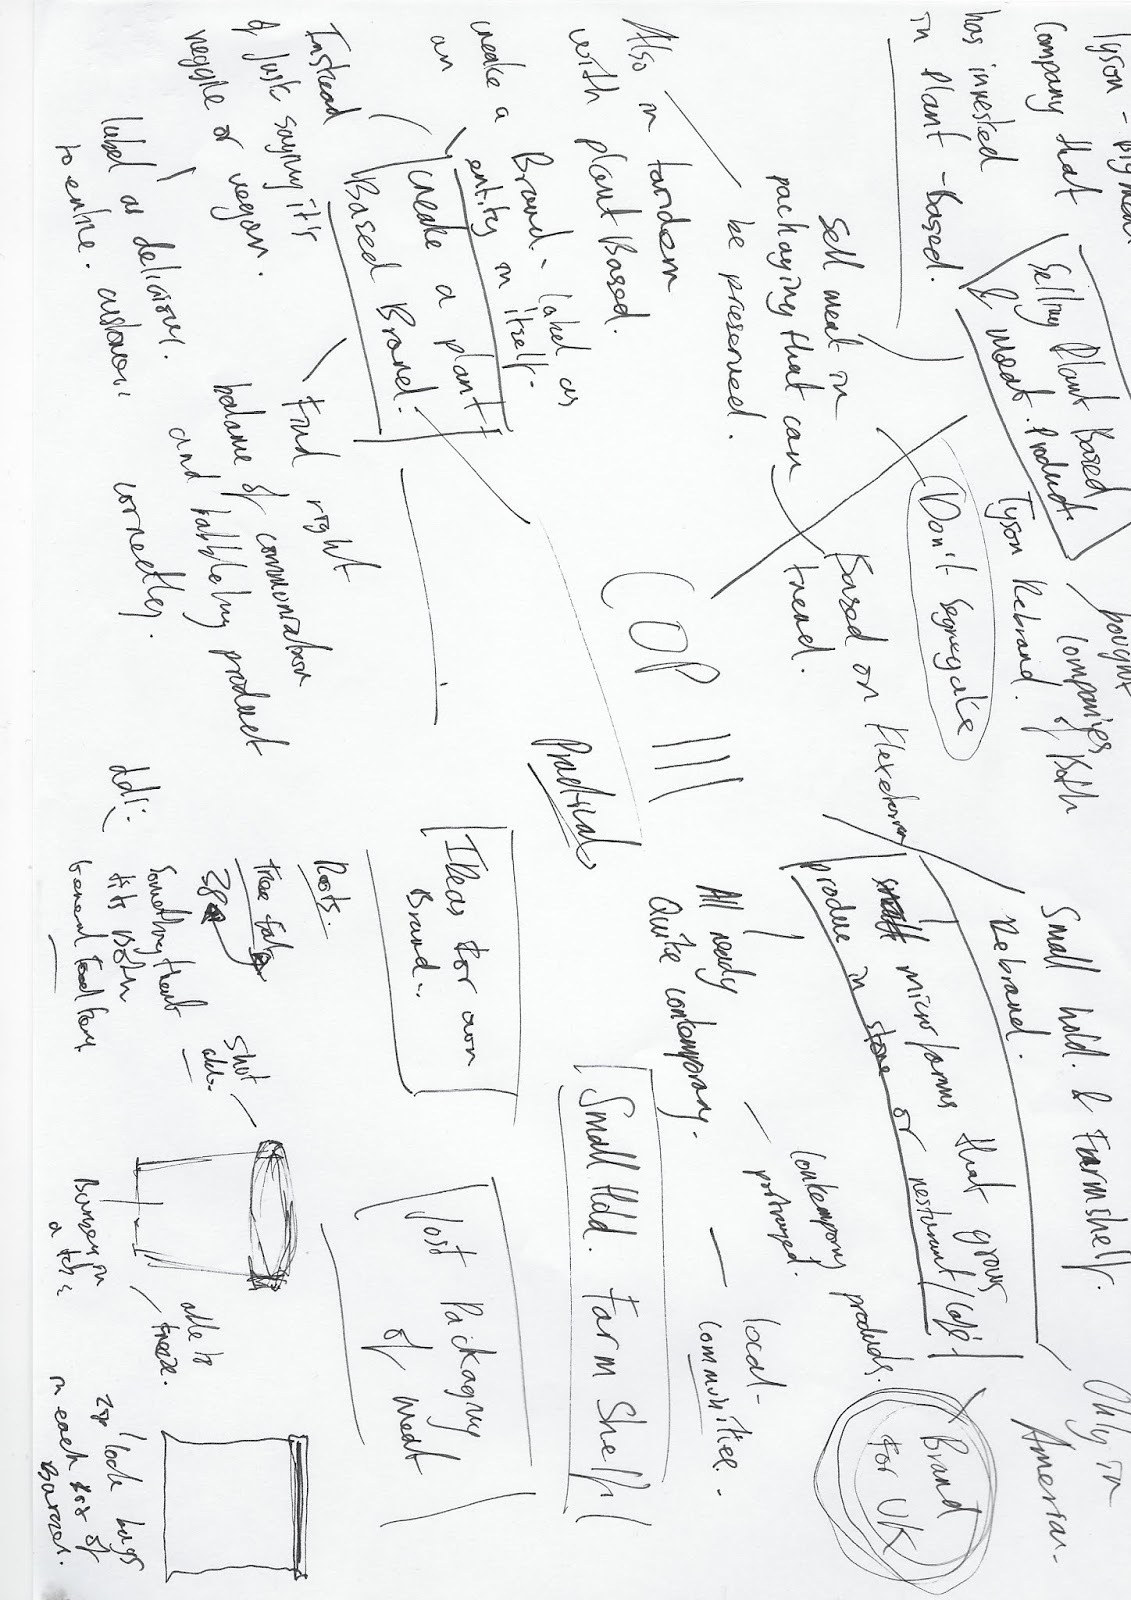 Tyson -
Company that
has invested
in Plant - Based.
Selling Plant Based
& Meat. Product
bought
Companyes
of Both
Tyson Rebrand.
Don't Segregate
Also in tandem
with plant Based.
Sell meat in
packaging that can
be preserved.
Based on Flexeterian
trend.
create a Brand - label as
an entity in itself.
create a plant
Based Brand.
Instead
of just saying it's
veggie or vegan.
label as delicious.
to entice. customers
Find right
balance of communication
and labbeling product
correctley.
COP III
Practical
Small hold. & Farmshelf.
Rebrand.
micro farms that grows
produce in store or resturant/cafe
Only in
American.
X Brand
For UK
All ready
Quite contemporary.
Contempory products.
portrayed.
local -
communities.
Small Hold. Farm Shelf
Ideas for own
Brand.
Roots.
Something that
fits Both
Just Packaging
of meat
Shut
able
to
freeze.
Zip lock bags
in each
of